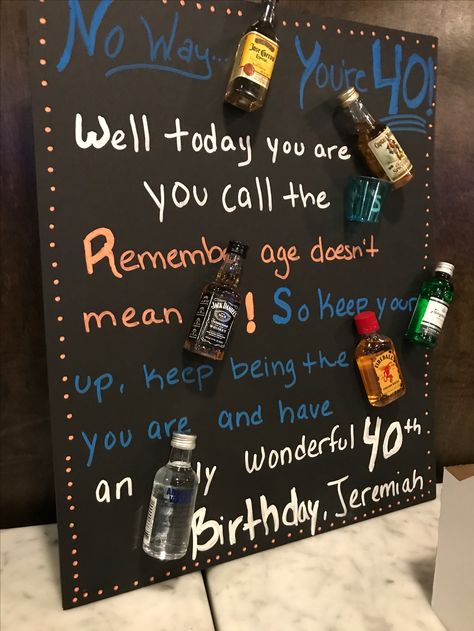 No Way... You're 40!
Well today you are
you call the
Remembe age doesn't
mean ! So keep your
up, keep being the
you are and have
an ly wonderful 40th
Birthday, Jeremiah
JACK DANIEL'S
FIREBALL